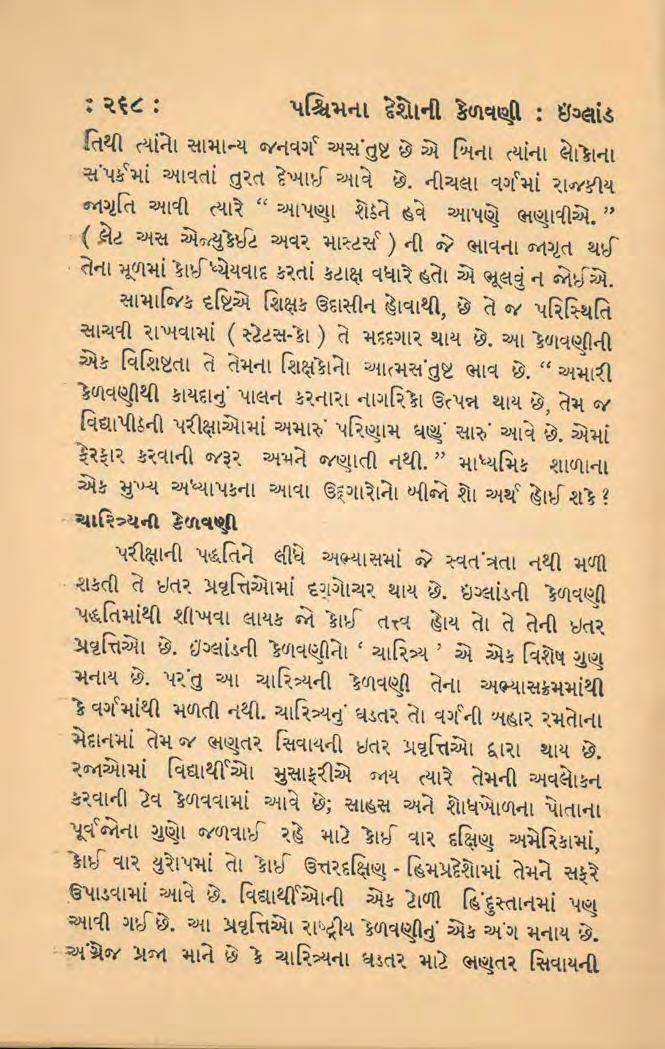 : ૨૬૮ : પશ્ચિમના દેશોની કેળવણી : ઇંગ્લાંડ
તિથી ત્યાંનો સામાન્ય જનવર્ગ અસંતુષ્ટ છે એ બિના ત્યાંના લોકોના
સંપર્કમાં આવતાં તુરત દેખાઈ આવે છે. નીચલા વર્ગમાં રાજકીય
જાગૃતિ આવી ત્યારે “ આપણા શેઠને હવે આપણે ભણાવીએ. ”
( લેટ અસ એજ્યુકેઈટ અવર માસ્ટર્સ ) ની જે ભાવના જાગૃત થઈ
તેના મૂળમાં કોઈ ધ્યેયવાદ કરતાં કટાક્ષ વધારે હતો એ ભૂલવું ન જોઈએ.
સામાજિક દૃષ્ટિએ શિક્ષક ઉદાસીન હોવાથી, છે તે જ પરિસ્થિતિ
સાચવી રાખવામાં ( સ્ટેટસ-કો ) તે મદદગાર થાય છે. આ કેળવણીની
એક વિશિષ્ટતા તે તેમના શિક્ષકોનો આત્મસંતુષ્ટ ભાવ છે. “ અમારી
કેળવણીથી કાયદાનું પાલન કરનારા નાગરિકો ઉત્પન્ન થાય છે, તેમ જ
વિદ્યાપીઠની પરીક્ષાઓમાં અમારું પરિણામ ઘણું સારું આવે છે. એમાં
ફેરફાર કરવાની જરૂર અમને જણાતી નથી. ” માધ્યમિક શાળાના
એક મુખ્ય અધ્યાપકના આવા ઉદ્ગારોનો બીજો શો અર્થ હોઈ શકે ?
ચારિત્ર્યની કેળવણી
પરીક્ષાની પદ્ધતિને લીધે અભ્યાસમાં જે સ્વતંત્રતા નથી મળી
શકતી તે ઇતર પ્રવૃત્તિઓમાં દૃગ્ગોચર થાય છે. ઇંગ્લાંડની કેળવણી
પદ્ધતિમાંથી શીખવા લાયક જો કોઈ તત્ત્વ હોય તો તે તેની ઇતર
પ્રવૃત્તિઓ છે. ઇંગ્લાંડની કેળવણીનો ‘ ચારિત્ર્ય ’ એ એક વિશેષ ગુણ
મનાય છે. પરંતુ આ ચારિત્ર્યની કેળવણી તેના અભ્યાસક્રમમાંથી
કે વર્ગમાંથી મળતી નથી. ચારિત્ર્યનું ઘડતર તો વર્ગની બહાર રમતોના
મેદાનમાં તેમ જ ભણતર સિવાયની ઇતર પ્રવૃત્તિઓ દ્વારા થાય છે.
રજાઓમાં વિદ્યાર્થીઓ મુસાફરીએ જાય ત્યારે તેમની અવલોકન
કરવાની ટેવ કેળવવામાં આવે છે; સાહસ અને શોધખોળના પોતાના
પૂર્વજોના ગુણો જળવાઈ રહે માટે કોઈ વાર દક્ષિણ અમેરિકામાં,
કોઈ વાર યુરોપમાં તો કોઈ ઉત્તરદક્ષિણ - હિમપ્રદેશોમાં તેમને સફરે
ઉપાડવામાં આવે છે. વિદ્યાર્થીઓની એક ટોળી હિંદુસ્તાનમાં પણ
આવી ગઈ છે. આ પ્રવૃત્તિઓ રાષ્ટ્રીય કેળવણીનું એક અંગ મનાય છે.
અંગ્રેજ પ્રજા માને છે કે ચારિત્ર્યના ઘડતર માટે ભણતર સિવાયની